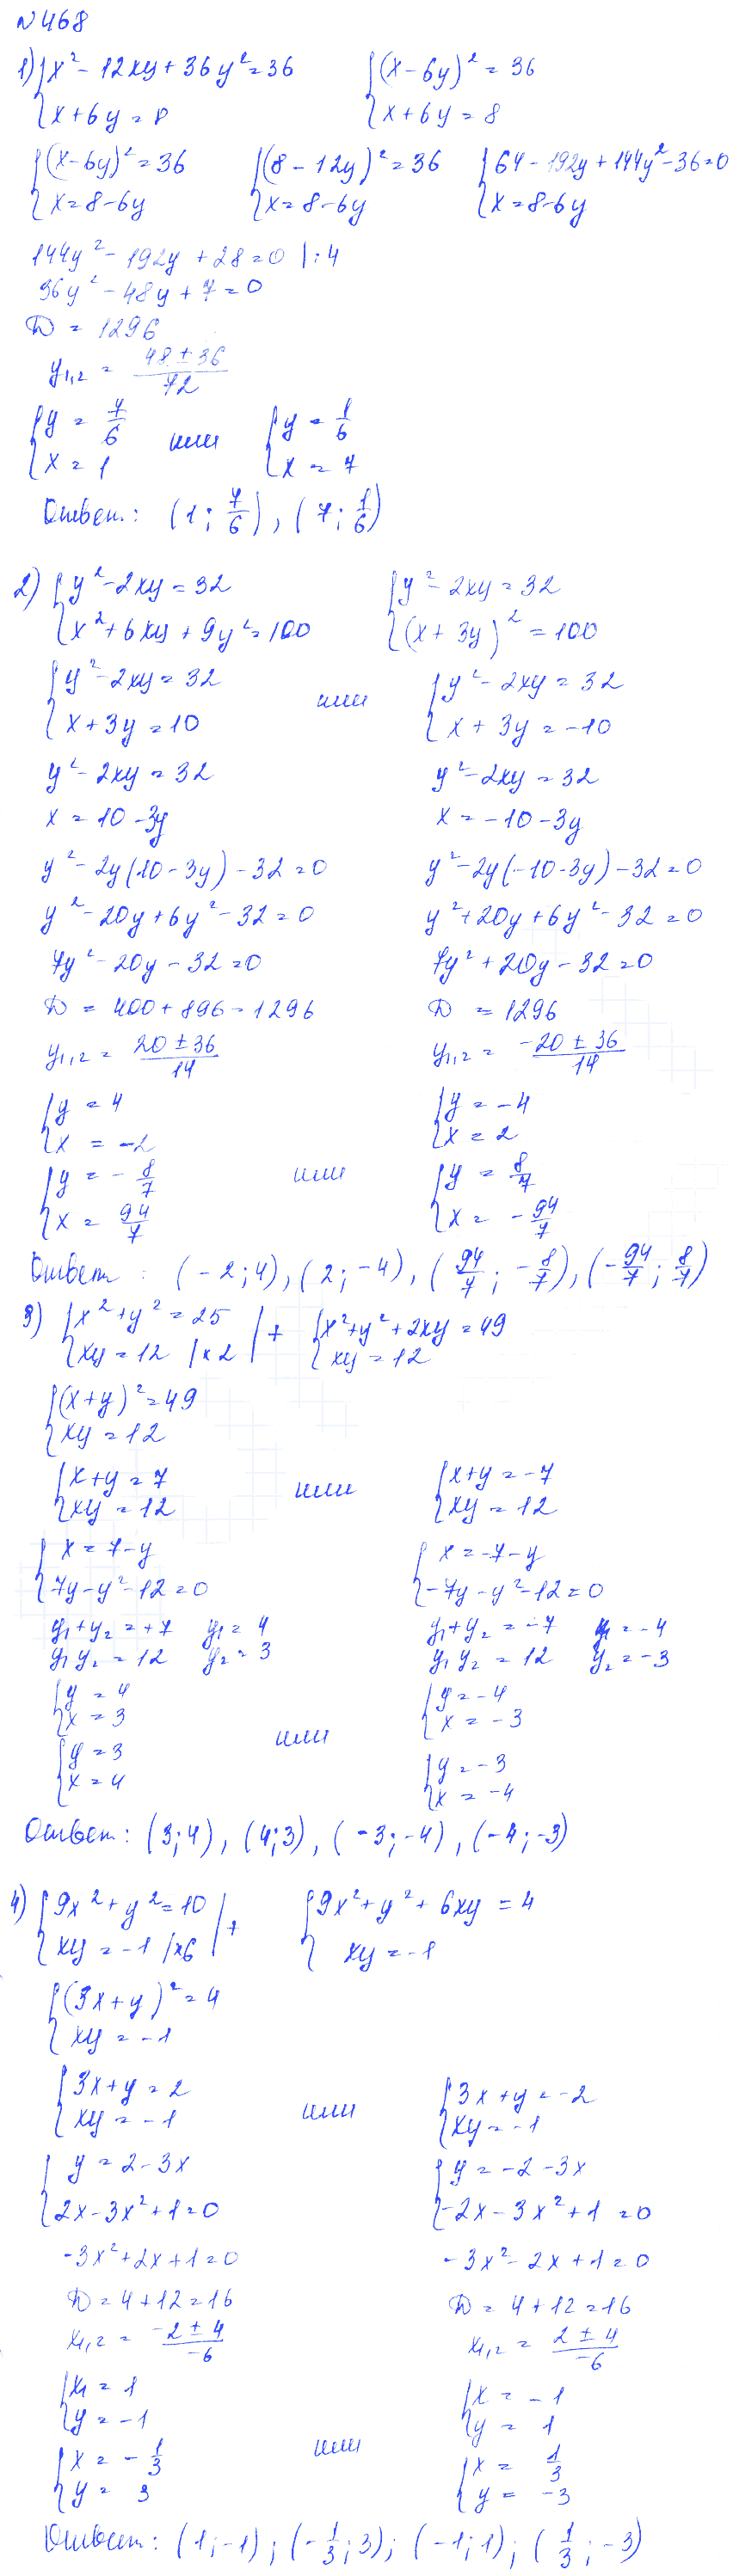 №468
1) { x² - 12xy + 36y² = 36    { (x-6y)² = 36
{ x + 6y = 8    { x + 6y = 8
{ (x-6y)² = 36    { (8-12y)² = 36    { 64 - 192y + 144y² - 36 = 0
{ x = 8-6y    { x = 8-6y    { x = 8-6y
144y² - 192y + 28 = 0 |:4
36y² - 48y + 7 = 0
D = 1296
y₁,₂ = (48 ± 36)/72
{ y = 7/6    или    { y = 1/6
{ x = 1    { x = 7
Ответ: (1; 7/6), (7; 1/6)
2) { y² - 2xy = 32    { y² - 2xy = 32
{ x² + 6xy + 9y² = 100    { (x + 3y)² = 100
{ y² - 2xy = 32    или    { y² - 2xy = 32
{ x + 3y = 10    { x + 3y = -10
y² - 2xy = 32    y² - 2xy = 32
x = 10 - 3y    x = -10 - 3y
y² - 2y(10 - 3y) - 32 = 0    y² - 2y(-10 - 3y) - 32 = 0
y² - 20y + 6y² - 32 = 0    y² + 20y + 6y² - 32 = 0
7y² - 20y - 32 = 0    7y² + 20y - 32 = 0
D = 400 + 896 = 1296    D = 1296
y₁,₂ = (20 ± 36)/14    y₁,₂ = (-20 ± 36)/14
{ y = 4    { y = -4
{ x = -2    { x = 2
{ y = -8/7    или    { y = 8/7
{ x = 94/7    { x = -94/7
Ответ : (-2; 4), (2; -4), (94/7; -8/7), (-94/7; 8/7)
3) { x² + y² = 25 | +    { x² + y² + 2xy = 49
{ xy = 12 |×2    { xy = 12
{ (x+y)² = 49
{ xy = 12
{ x+y = 7    или    { x+y = -7
{ xy = 12    { xy = 12
{ x = 7-y    { x = -7-y
{ 7y - y² - 12 = 0    { -7y - y² - 12 = 0
y₁ + y₂ = +7    y₁ = 4    y₁ + y₂ = -7    y₁ = -4
y₁ y₂ = 12    y₂ = 3    y₁ y₂ = 12    y₂ = -3
{ y = 4    { y = -4
{ x = 3    или    { x = -3
{ y = 3    { y = -3
{ x = 4    { x = -4
Ответ: (3; 4), (4; 3), (-3; -4), (-4; -3)
4) { 9x² + y² = 10 | +    { 9x² + y² + 6xy = 4
{ xy = -1 |×6    { xy = -1
{ (3x+y)² = 4
{ xy = -1
{ 3x+y = 2    или    { 3x+y = -2
{ xy = -1    { xy = -1
{ y = 2-3x    { y = -2-3x
{ 2x - 3x² + 1 = 0    { -2x - 3x² + 1 = 0
-3x² + 2x + 1 = 0    -3x² - 2x + 1 = 0
D = 4 + 12 = 16    D = 4 + 12 = 16
x₁,₂ = (-2 ± 4)/-6    x₁,₂ = (2 ± 4)/-6
{ x₁ = 1    { x = -1
{ y = -1    или    { y = 1
{ x = -1/3    { x = 1/3
{ y = 3    { y = -3
Ответ: (1; -1); (-1/3; 3); (-1; 1); (1/3; -3)